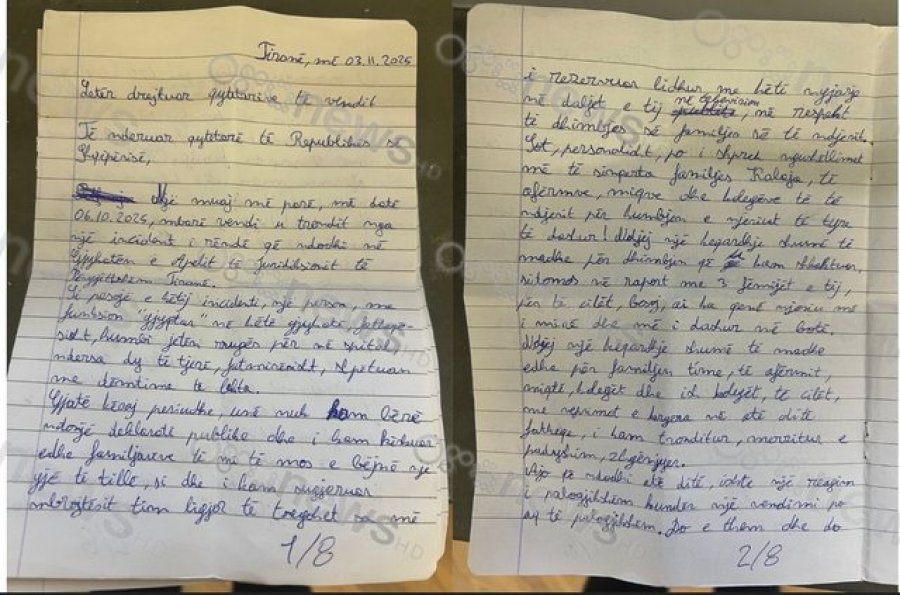 Tiranë, më 03.11.2025
Letër drejtuar qytetarëve të vendit
Të nderuar qytetarë të Republikës së
Shqipërisë,
Një muaj më parë, më datë
06.10.2025, mbarë vendi u trondit nga
një incident i rëndë që ndodhi në
Gjykatën e Apelit të Juridiksionit të
Përgjithshëm Tiranë.
Si pasojë e këtij incidenti, një person, me
funksion "gjyqtar" në këtë gjykatë, fatkeqë-
sisht, humbi jetën rrugës për në spital,
ndërsa dy të tjerë, fatmirësisht, shpëtuan
me dëmtime të lehta.
Gjatë kësaj periudhe, unë nuk kam bërë
ndonjë deklaratë publike dhe i kam kërkuar
edhe familjarëve të mi të mos e bëjnë një
gjë të tillë, si dhe i kam sugjeruar
mbrojtësit tim ligjor të tregohet sa më
1/8
i rezervuar lidhur me këtë ngjarje
në daljet e tij në televizion, në respekt
të dhimbjes së familjes së të ndjerit.
Sot, personalisht, po i shpreh ngushëllimet
më të sinqerta familjes Kalaja, të
afërmve, miqve dhe kolegëve të të
ndjerit për humbjen e njeriut të tyre
të dashur! Ndjej një keqardhje shumë të
madhe për dhimbjen që kam shkaktuar,
sidomos në raport me 3 fëmijët e tij,
për të cilët, besoj, ai ka qenë njeriu më
i mirë dhe më i dashur në botë.
Ndjej një keqardhje shumë të madhe
edhe për familjen time, të afërmit,
miqtë, kolegët dhe ish kolegët, të cilët,
me veprimet e kryera në atë ditë
fatkeqe, i kam tronditur, mërzitur e
padyshim, zhgënjyer.
Ajo që ndodhi atë ditë, ishte një reagim
i palogjikshëm kundër një vendimi po
aq të palogjikshëm. Do e them dhe do
2/8
news
HD